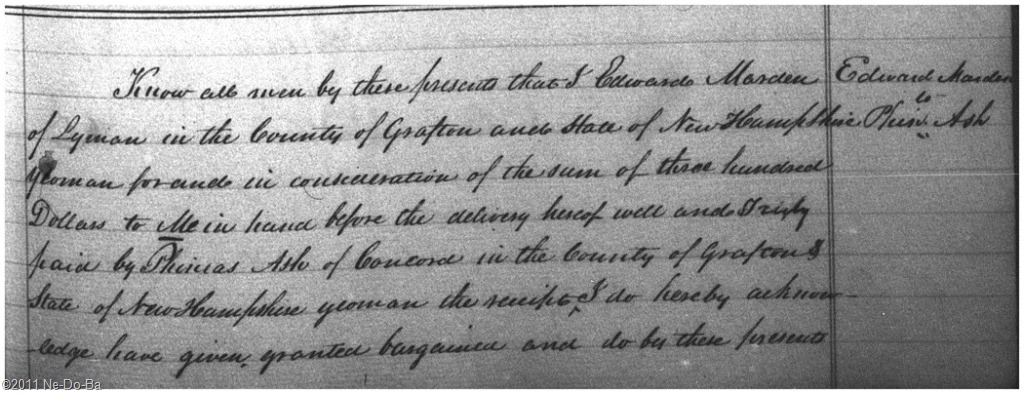 Know all men by these presents that I Edward Marden
of Lyman in the County of Grafton and State of New Hampshire
yeoman for and in consideration of the sum of three hundred
Dollars to Me in hand before the delivery hereof well and Truly
paid by Phineas Ash of Concord in the County of Grafton &
State of New Hampshire yeoman the receipt ‸ I do hereby acknow-
-ledge have given, granted bargained and do by these presents
Edward Marden
to
Phin. Ash
©2011 Ne-Do-Ba